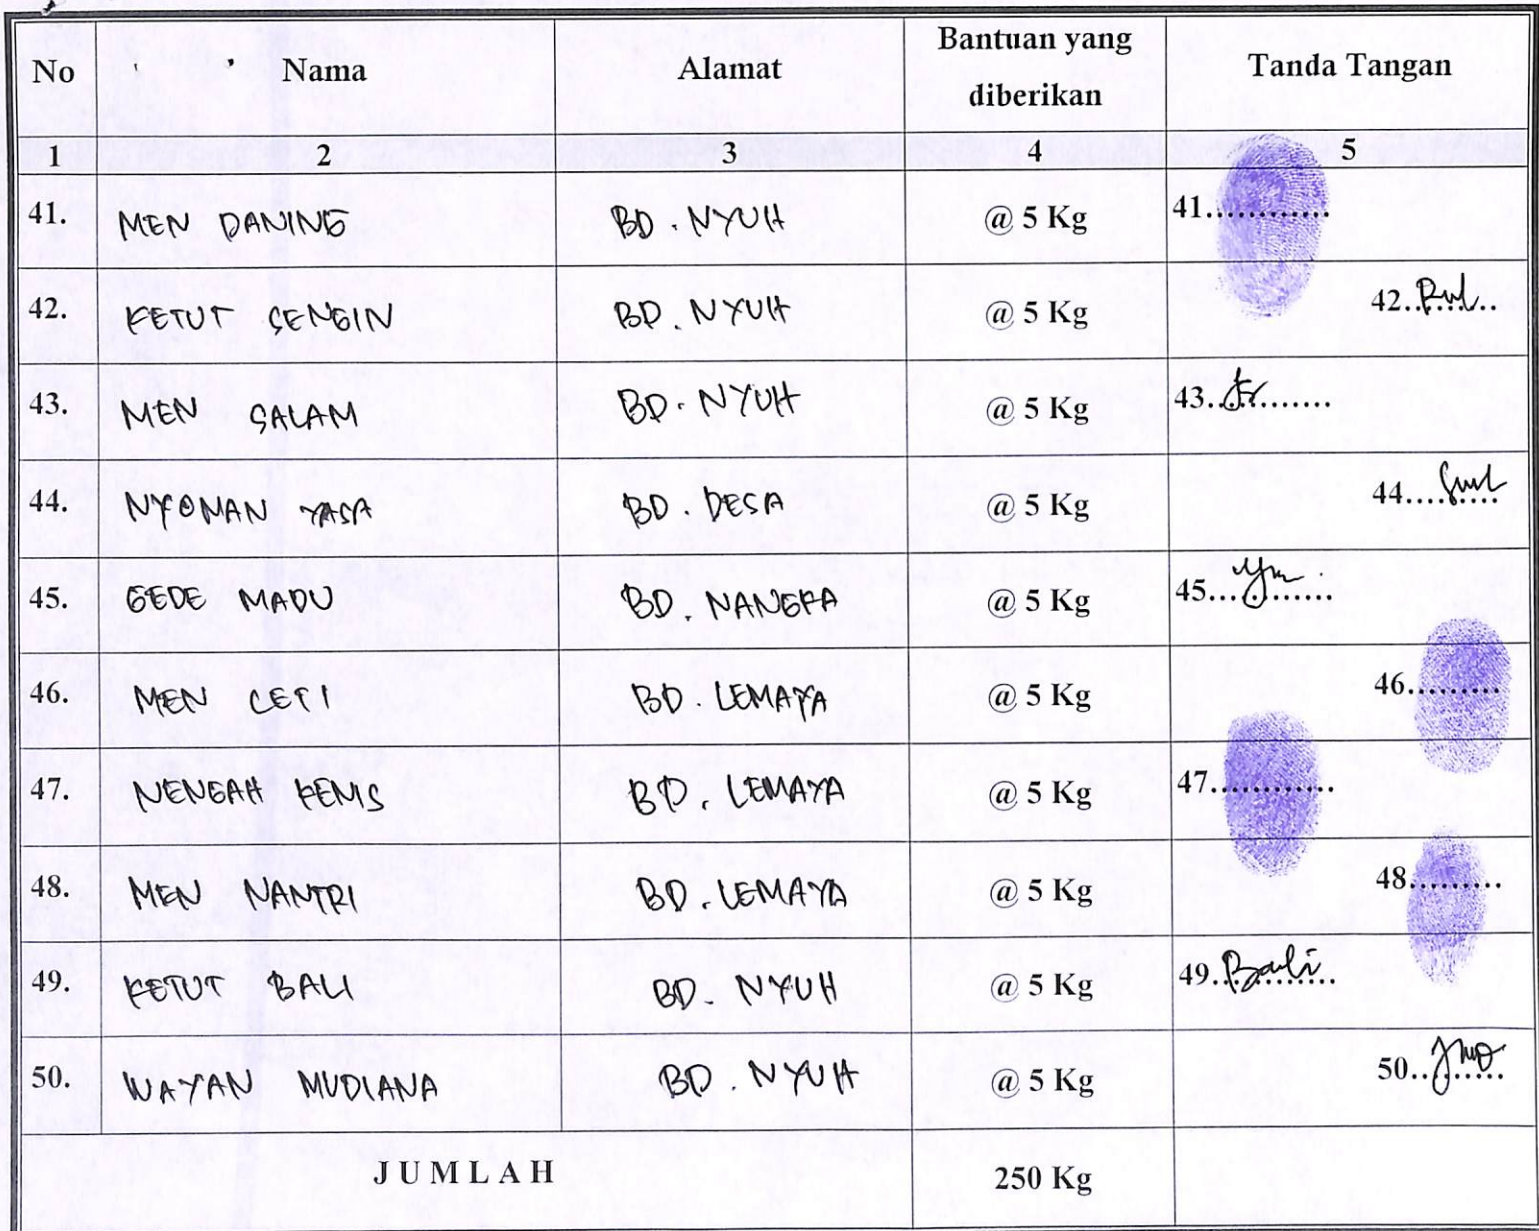 No Nama Alamat Bantuan yang diberikan Tanda Tangan
1 2 3 4 5
41. MEN DANING BD. NYUH @ 5 Kg 41.............
42. KETUT SENGIN BD. NYUH @ 5 Kg 42..........
43. MEN SALAM BD. NYUH @ 5 Kg 43............
44. NYOMAN YASA BD. DESA @ 5 Kg 44..........
45. GEDE MADU BD. NANGKA @ 5 Kg 45............
46. MEN CETI BD. LEMAYA @ 5 Kg 46..........
47. NENGAH KENIS BD. LEMAYA @ 5 Kg 47.............
48. MEN NANTRI BD. LEMAYA @ 5 Kg 48..........
49. KETUT BALI BD. NYUH @ 5 Kg 49..Bali........
50. WAYAN MUDIANA BD. NYUH @ 5 Kg 50..........
JUMLAH 250 Kg